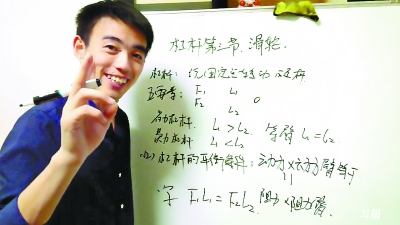 杠杆第三节,滑轮.
杠杆: 绕固定点转动
五要素: F₁ L₁
F₂ L₂ O
省力杠杆. L₁>L₂. 等臂 L₁=L₂
费力杠杆. L₁<L₂
杠杆的平衡条件: 动力×动力臂等于
F₁L₁=F₂L₂. 阻力×阻力臂.